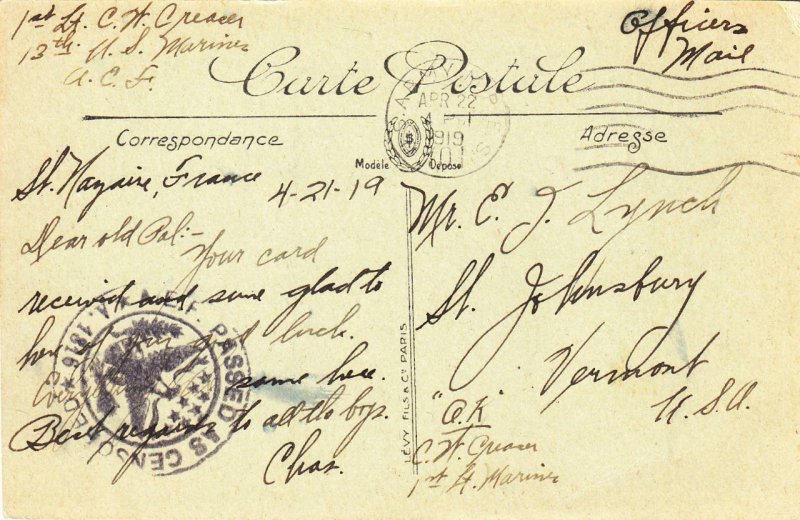 1st Lt. C. W. Creaser
13th U. S. Marines
A. E. F.
Officers
Mail
Carte Postale
U.S. ARMY
APR 22
1919
Correspondance
Adresse
Modèle Déposé
St. Nazaire, France
4-21-19
Dear old Pal:-
Your card
received and sure glad to
hear of your good luck.
Everything same here.
Best regards to all the boys.
Chas.
A.E.F. PASSED AS CENSORED A. 1816
LÉVY FILS & Cie PARIS
Mr. E. J. Lynch
St. Johnsbury
Vermont
U.S.A.
"O.K."
C. W. Creaser
1st Lt. Marines